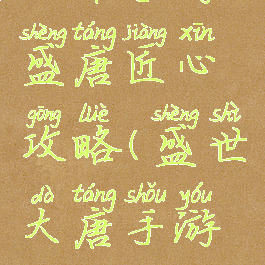 shèng táng jiàng xīn
盛唐匠心
gōng lüè shèng shì
攻略(盛世
dà táng shǒu yóu
大唐手游